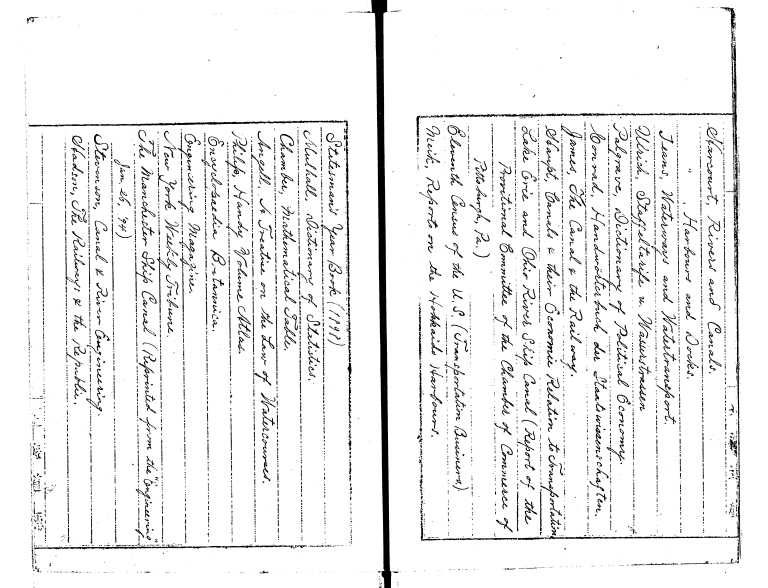 Harcourt, Rivers and Canals.
" , Harbours and Docks.
Jeans, Waterways and Watertransport.
Ulrich, Staffeltarife u Wasserstrassen
Palgrave, Dictionary of Political Economy.
Conrad, Handwörterbuch der Staatswissenschaften.
James, The Canal & the Railway.
Haupt, Canals & their Economic Relation to Transportation
Lake Erie and Ohio River Ship Canal (Report of the
Provitional Committee of the Chamber of Commerce of
Pittsburgh, Pa.)
Eleventh Census of the U.S. (Transportation Business)
Meik, Reports on the Hokkaido Harbours.
Statesman's Year Book (1898)
Mulhall, Dictionary of Statistics.
Chamber, Mathematical Table.
Angell, A Treatise on the Law of Watercourses.
Philip, Handy Volume Atlas.
Encyclopaedia Britannica.
Engineering Magazine.
New York Weekly Tribune
The Manchester Ship Canal (Reprinted from the "Engineering"
Jan. 26, '94)
Stevenson, Canal & River Engineering.
Hadson, The Railways & the Republic.